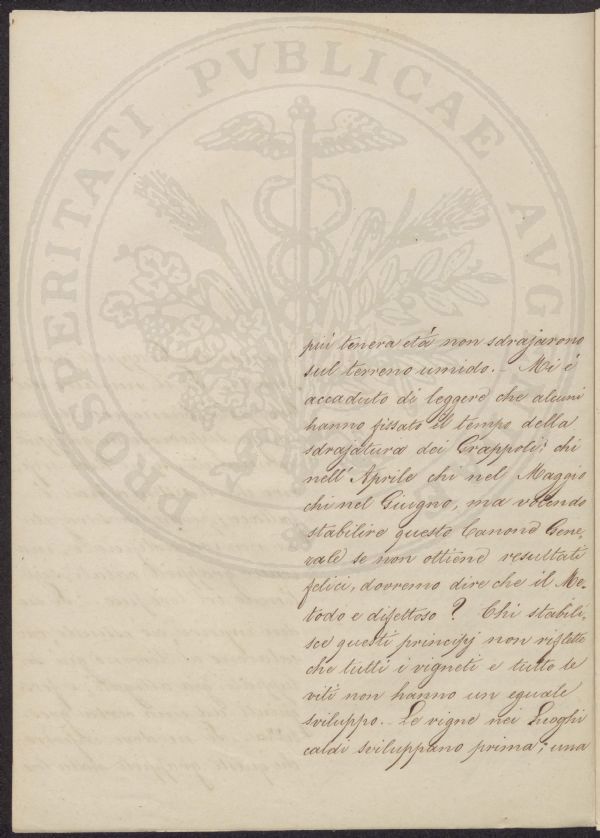 PROSPERITATI PVBLICAE AVGENDAE
più tenera età non sdrajarono
sul terreno umido. - Mi è
accaduto di leggere che alcuni
hanno fissato il tempo della
sdrajatura dei Grappoli; chi
nell' Aprile chi nel Maggio
chi nel Giugno, ma volendo
stabilire questo Canone Gene,
rale se non ottiene resultati
felici, dovremo dire che il Me,
todo e difettoso ? Chi stabili,
sce questi principj non riflette
che tutti i vigneti e tutte le
viti non hanno un eguale
sviluppo. - Le vigne nei Luoghi
caldi sviluppano prima; una